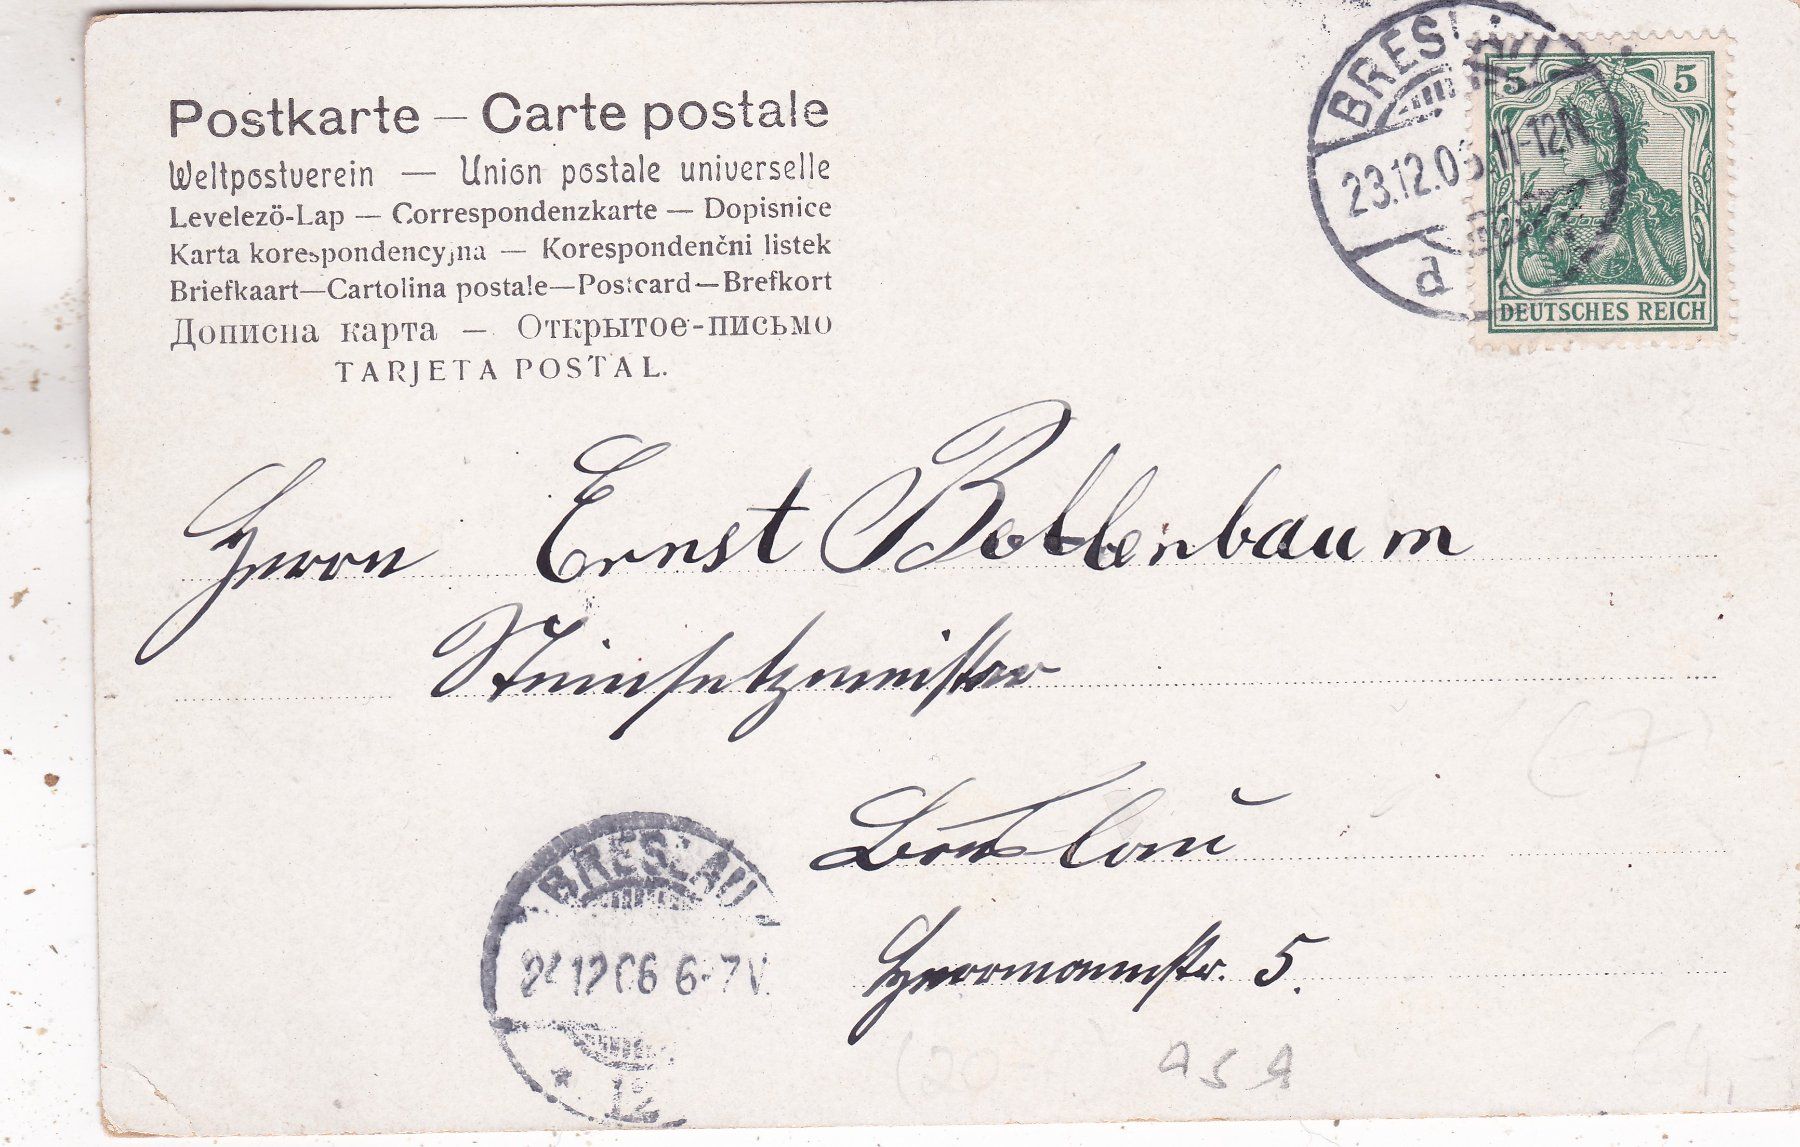 Postkarte — Carte postale
Weltpostverein — Union postale universelle
Levelező-Lap — Correspondenzkarte — Dopisnice
Karta korespondencyjna — Korespondenčni listek
Briefkaart—Cartolina postale—Postcard—Brefkort
Дописна карта — Открытое-письмо
TARJETA POSTAL.
BRESLAU
23.12.06.11-12N
d
5 5
DEUTSCHES REICH
Herrn Ernst
Steinsetzmeister
Breslau
Herrmannstr. 5.
BRESLAU
24 12 06 6-7V
* 12
(7)